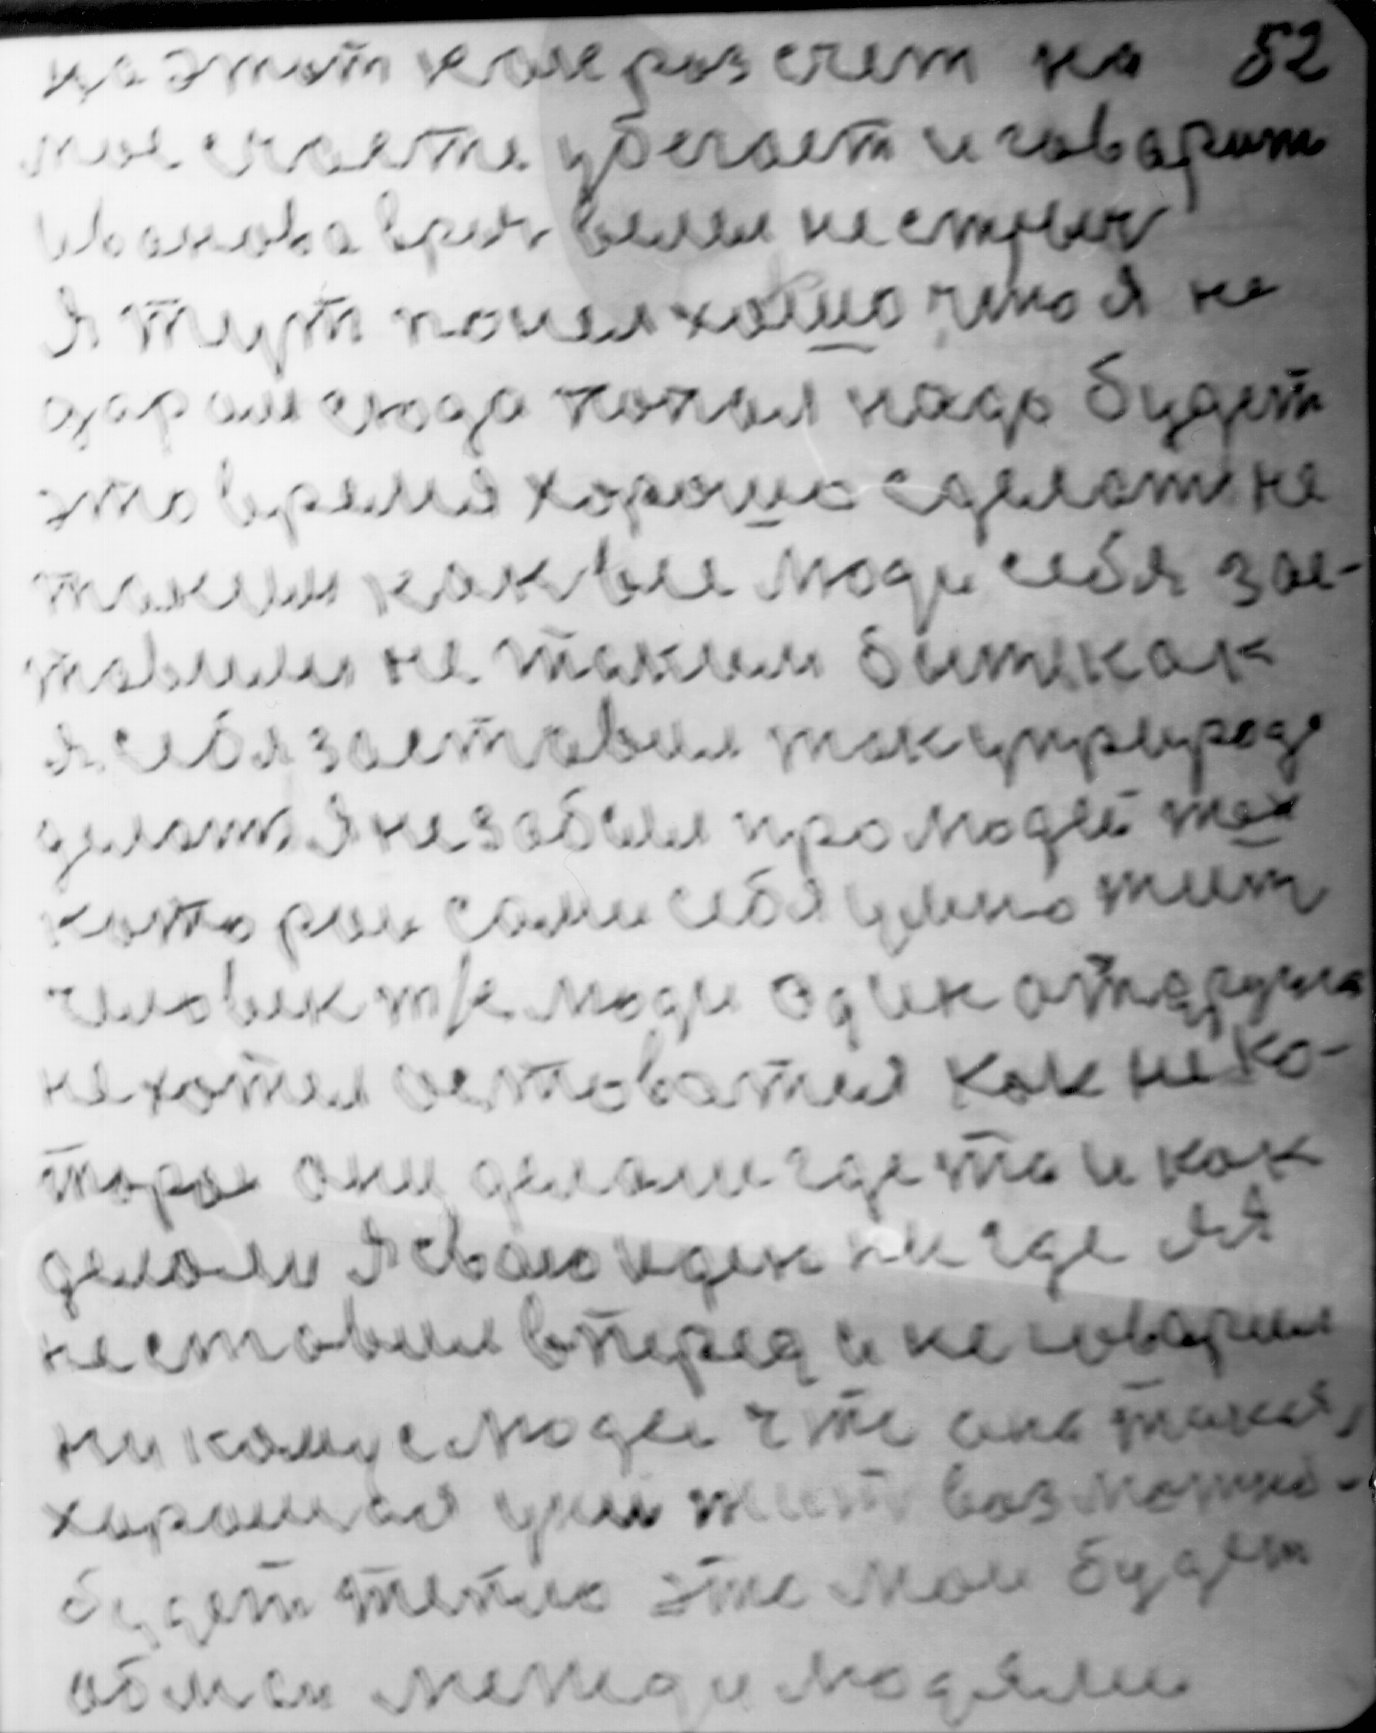 на этот как раз счет на 52
мое счастье убегает и говорит
Иванова врач велел не стрич
Я тут понел хашо што я не
даром сюда попал надо будет
это время хорошо сделат не
таким как все люди себя зас-
тавили не таким быть как
я себя заставил так у природе
делать я не забыл про людей тех
которои сами себя умнотит
человек т/к люди один от друга
не хотел оставатся как неко-
тора они делали где то и как
делали я свою идею ни где Я
не ставил вперед и не говорил
ни кому с людей что она такая
хорошая у ней жит возможно
будет тепло это мои будет
обман между людями